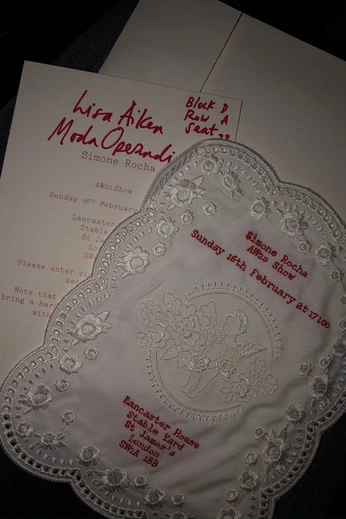 Lisa Aiken
Moda Operandi
Block D
Row A
Seat
Simone Rocha
AW20 Show
Sunday 16th February
Lancaster
Stable
St Jam
SW
Please enter vi
Note that
bring a har
with
Simone Rocha
AW20 Show
Sunday 16th February at 17:00
Lancaster House
Stable Yard
St James's
London
SW1A 1BB